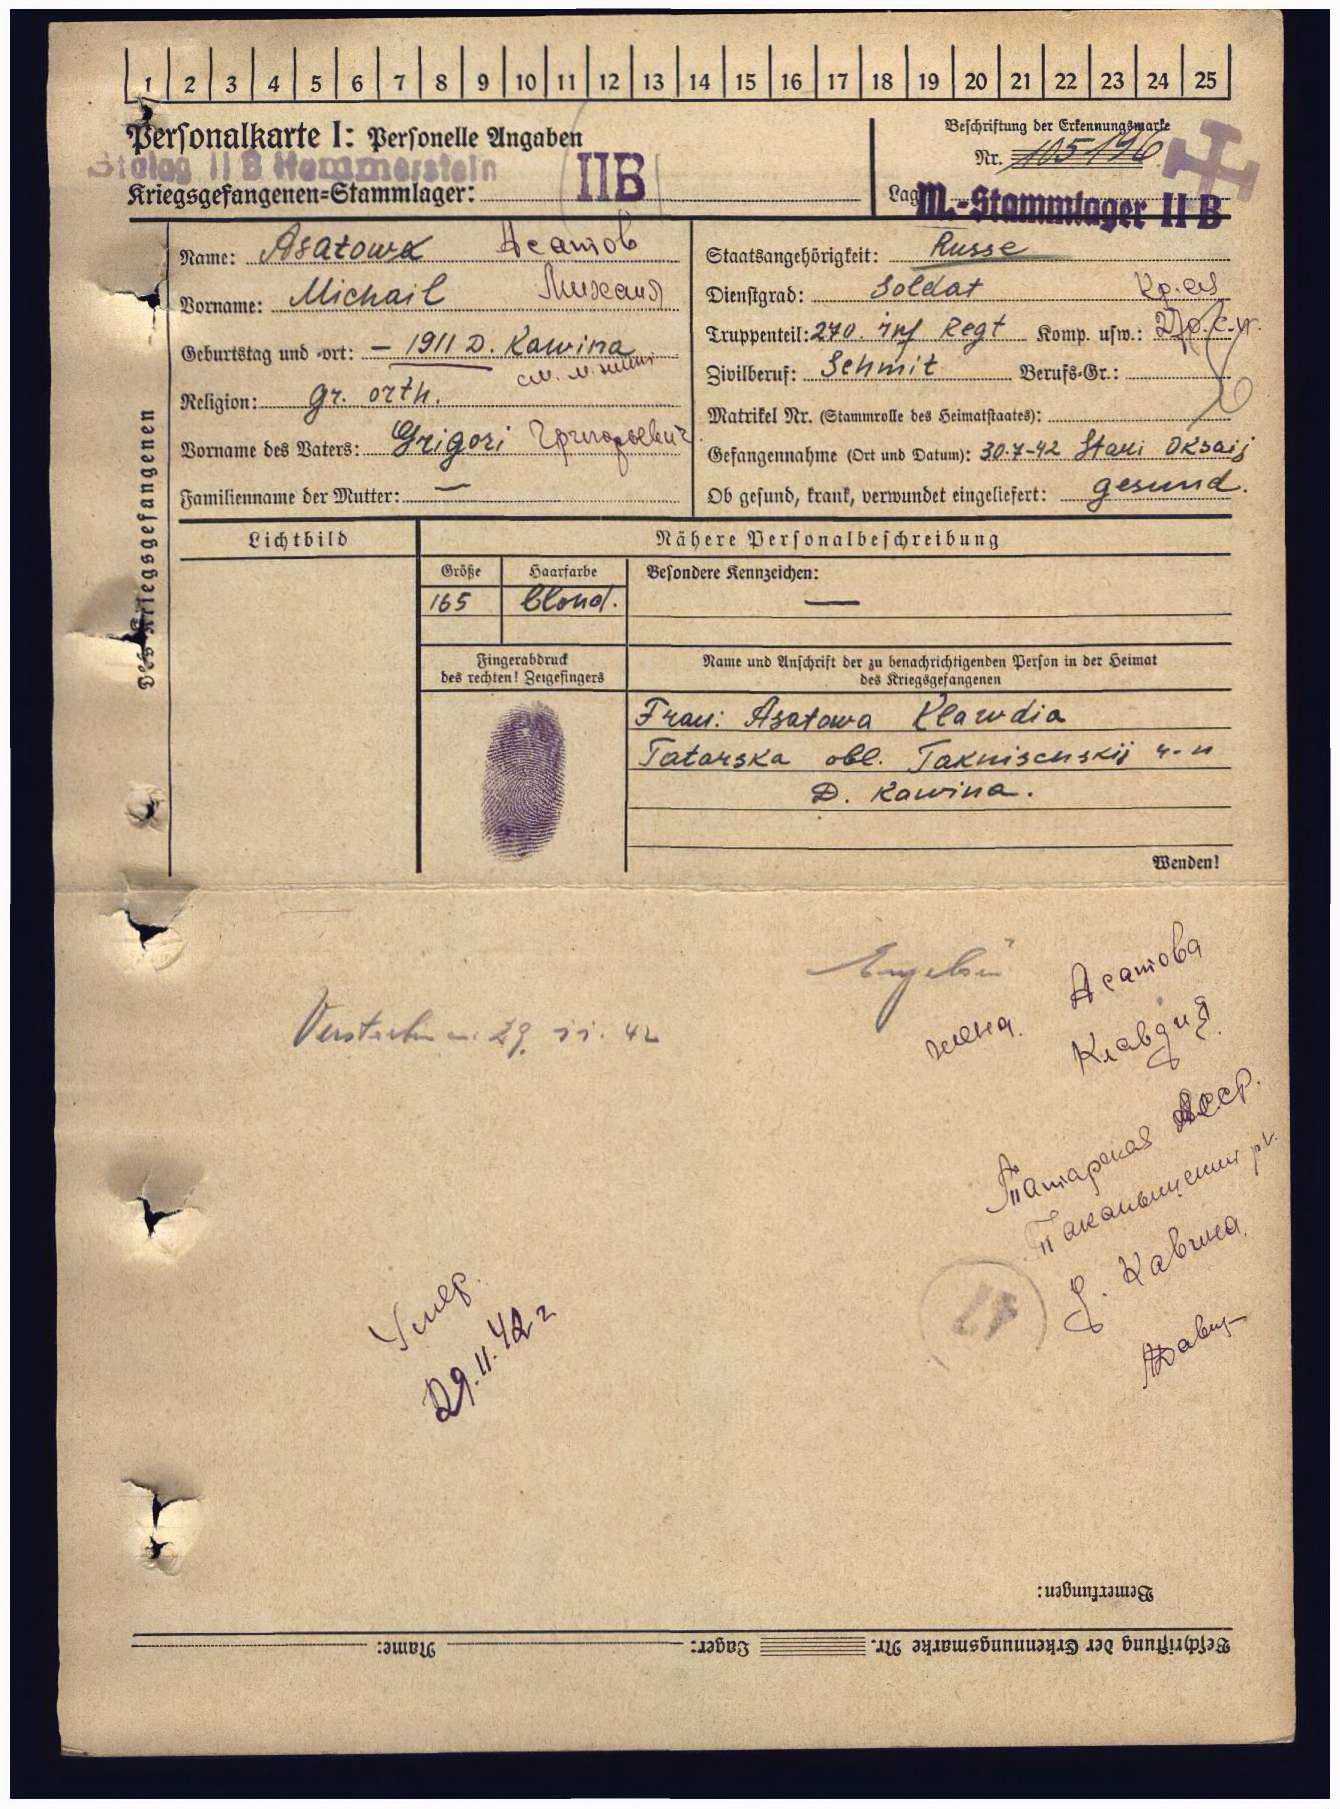 1 2 3 4 5 6 7 8 9 10 11 12 13 14 15 16 17 18 19 20 21 22 23 24 25
Personalkarte I: Personelle Angaben
Stalag II B Hammerstein
Kriegsgefangenen-Stammlager: II B
Beschriftung der Erkennungsmarke
Nr. 105196
Lag
M.-Stammlager II B
Des Kriegsgefangenen
Name: Asatowa Асатов
Vorname: Michail Михаил
Geburtstag und -ort: – 1911 D. Kawina
см. м. жит
Religion: gr. orth.
Vorname des Vaters: Grigori Григорьевич
Familienname der Mutter: —
Staatsangehörigkeit: Russe
Dienstgrad: Soldat Кр. ец
Truppenteil: 270. inf Regt Komp. usw.:
Zivilberuf: Schmit Berufs-Gr.:
Matrikel Nr. (Stammrolle des Heimatstaates):
Gefangennahme (Ort und Datum): 30.7-42 Stari Oksaij
Ob gesund, krank, verwundet eingeliefert: gesund.
Lichtbild
Nähere Personalbeschreibung
Größe Haarfarbe Besondere Kennzeichen:
165 blond. —
Fingerabdruck
des rechten! Zeigefingers
Name und Anschrift der zu benachrichtigenden Person in der Heimat
des Kriegsgefangenen
Frau: Asatowa Klawdia
Tatarska obl. Takmisenskij r-n
D. Kawina.
Wenden!
Verstorben 29 11. 42
жена. Асатова
Клавдия.
Татарская АССР.
д. Кавина.
Умер.
29.11.42 г
Bemerkungen:
Beschriftung der Erkennungsmarke Nr. Lager: Name: